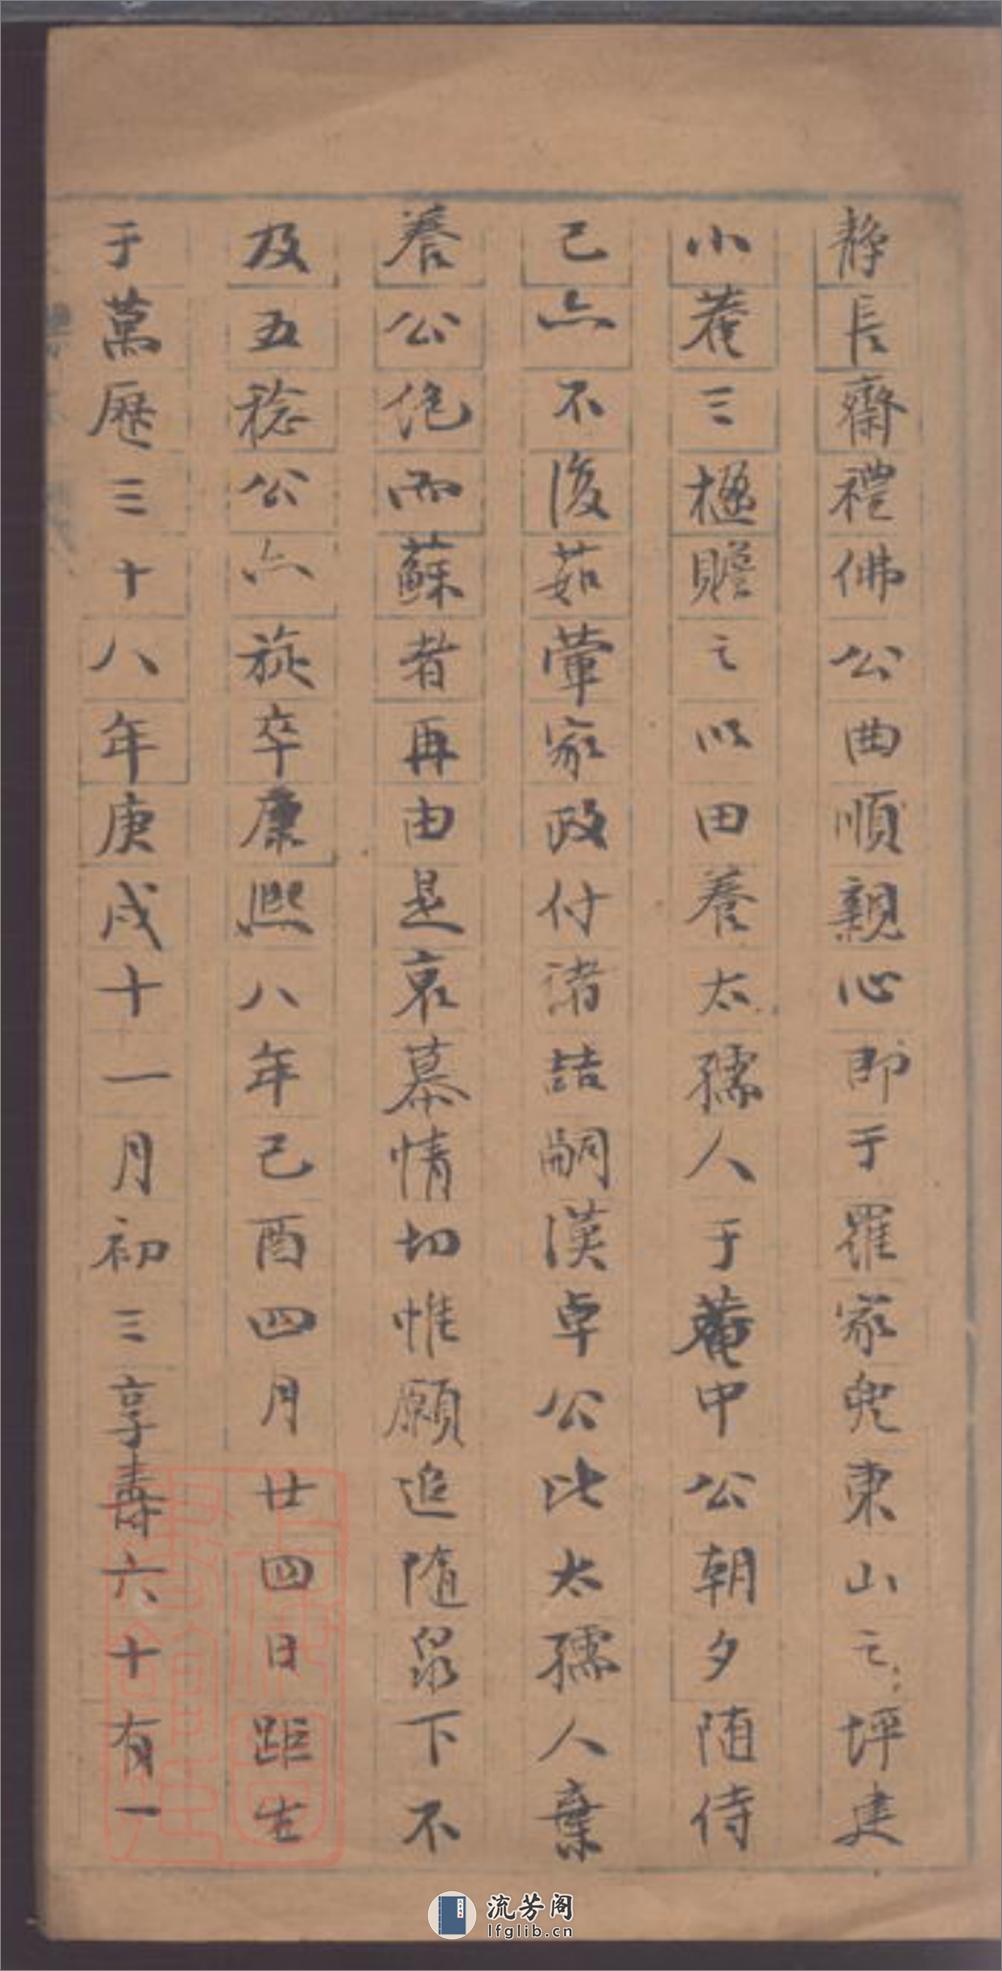 静長齋禮佛公曲順親心即于羅家兜東山之坪建
小菴三楹贍之以田養太孺人于菴中公朝夕随侍
己亦不復茹葷家政付諸喆嗣漢卓公比太孺人棄
養公绝而蘇者再由是哀慕情切惟願追隨泉下不
及五稔公亦旋卒康熙八年己酉四月廿四日距生
于萬歷三十八年庚戌十一月初三享壽六十有一
流芳阁
lfglib.cn